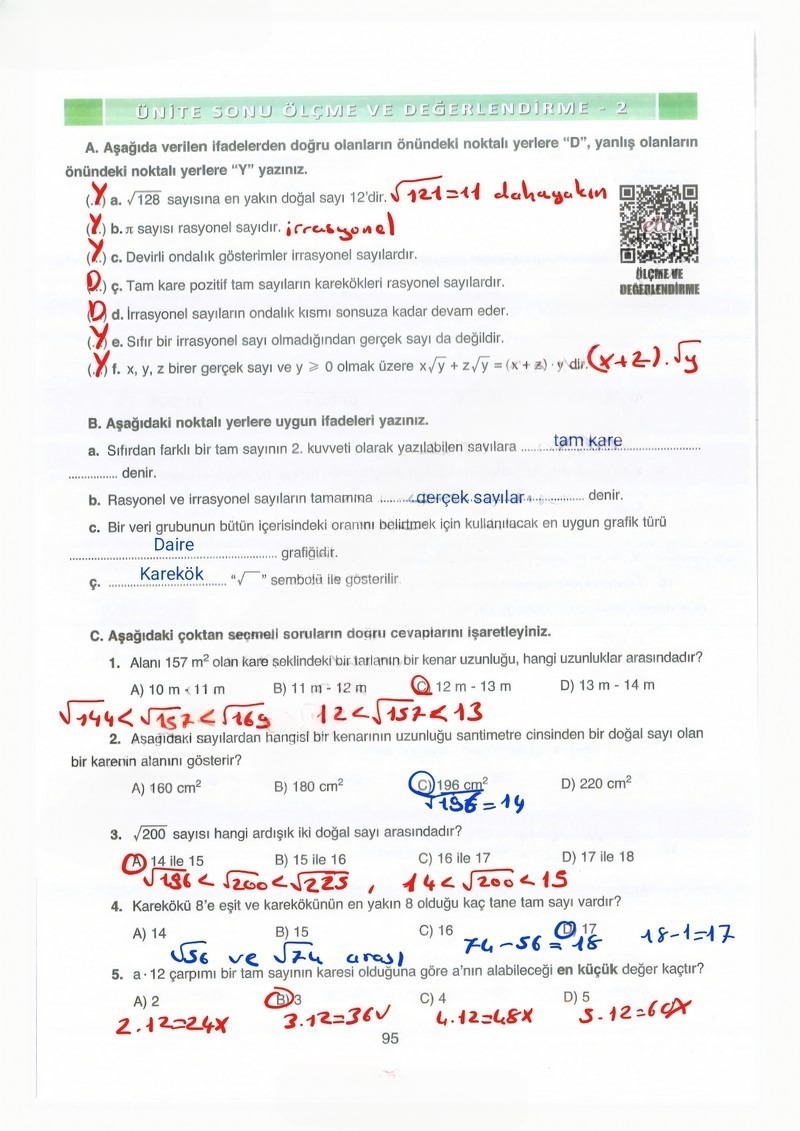 ÜNİTE SONU ÖLÇME VE DEĞERLENDİRME - 2
A. Aşağıda verilen ifadelerden doğru olanların önündeki noktalı yerlere “D”, yanlış olanların
önündeki noktalı yerlere “Y” yazınız.
(Y) a. √128 sayısına en yakın doğal sayı 12'dir. √121=11 daha yakın
(Y) b. π sayısı rasyonel sayıdır. irrasyonel
(Y) c. Devirli ondalık gösterimler irrasyonel sayılardır.
(D) ç. Tam kare pozitif tam sayıların karekökleri rasyonel sayılardır.
(D) d. İrrasyonel sayıların ondalık kısmı sonsuza kadar devam eder.
(Y) e. Sıfır bir irrasyonel sayı olmadığından gerçek sayı da değildir.
(Y) f. x, y, z birer gerçek sayı ve y ⩾ 0 olmak üzere x√y + z√y = (x + z) · y dir. (x+z).√y
ÖLÇME VE
DEĞERLENDİRME
B. Aşağıdaki noktalı yerlere uygun ifadeleri yazınız.
a. Sıfırdan farklı bir tam sayının 2. kuvveti olarak yazılabilen sayılara ..... tam kare .....
............... denir.
b. Rasyonel ve irrasyonel sayıların tamamına ..... gerçek sayılar ..... denir.
c. Bir veri grubunun bütün içerisindeki oranını belirtmek için kullanılacak en uygun grafik türü
..... Daire ..... grafiğidir.
ç. ..... Karekök ..... “√ ” sembolü ile gösterilir.
C. Aşağıdaki çoktan seçmeli soruların doğru cevaplarını işaretleyiniz.
1. Alanı 157 m² olan kare şeklindeki bir tarlanın bir kenar uzunluğu, hangi uzunluklar arasındadır?
A) 10 m - 11 m B) 11 m - 12 m C) 12 m - 13 m D) 13 m - 14 m
√144<√157<√169 12<√157<13
2. Aşağıdaki sayılardan hangisi bir kenarının uzunluğu santimetre cinsinden bir doğal sayı olan
bir karenin alanını gösterir?
A) 160 cm² B) 180 cm² C) 196 cm² D) 220 cm²
√196=14
3. √200 sayısı hangi ardışık iki doğal sayı arasındadır?
A) 14 ile 15 B) 15 ile 16 C) 16 ile 17 D) 17 ile 18
√196<√200<√225, 14<√200<15
4. Karekökü 8'e eşit ve karekökünün en yakın 8 olduğu kaç tane tam sayı vardır?
A) 14 B) 15 C) 16 D) 17
√56 ve √74 arası 74-56=18 18-1=17
5. a · 12 çarpımı bir tam sayının karesi olduğuna göre a'nın alabileceği en küçük değer kaçtır?
A) 2 B) 3 C) 4 D) 5
2.12=24X 3.12=36✓ 4.12=48X 5.12=60X
95